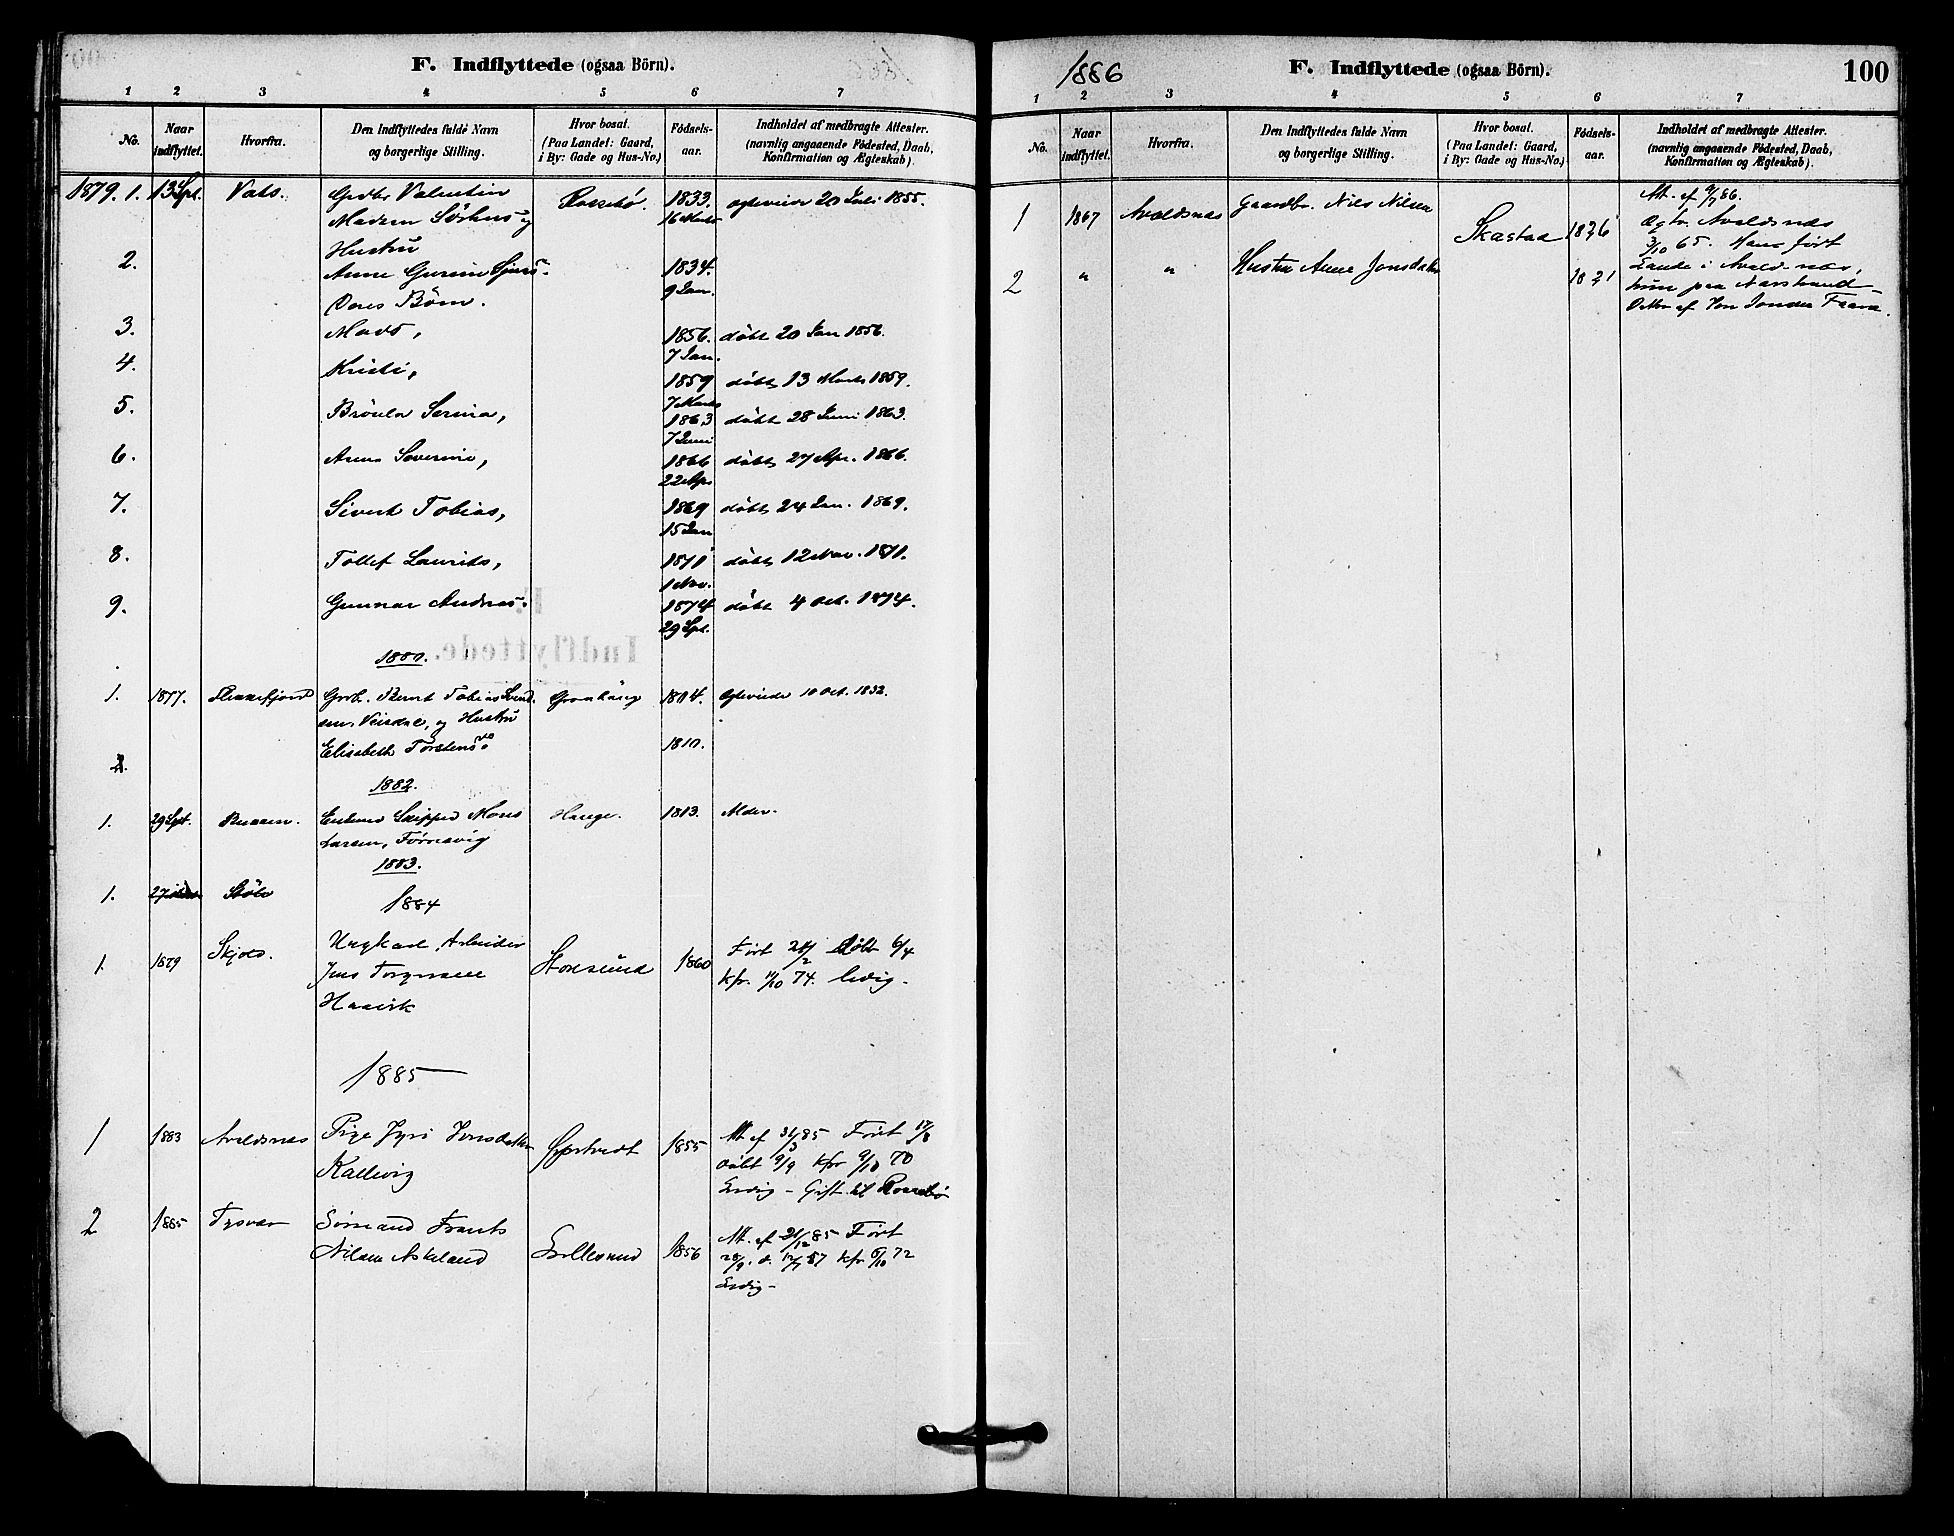 F. Indflyttede (ogsaa Börn).
1 2 3 4 5 6 7
No. Naar indflyttet. Hvorfra. Den Indflyttedes fulde Navn og borgerlige Stilling. Hvor bosat. (Paa Landet: Gaard, i By: Gade og Hus-No.) Födsels-aar. Indholdet af medbragte Attester. (navnlig angaaende Födested, Daab, Konfirmation og Ægteskab).
1879. 1. 13 Spt. Vats. Grdbr Valentin Rossebø. 1833. ægteviede 20 Juli 1855.
Madsen Sörhus og 16 Marts
Hustru
2. Anne Gurine Sjurs- 1834.
Deres Börn. 9 Jan.
3. Mads, 1856. döbt 20 Jan 1856.
7 Jan.
4. Kristi, 1859 döbt 13 Marts 1859.
7 Marts
5. Serina, 1863 döbt 28 Juni 1863.
7 Juni
6. Anna Severine, 1866 döbt 27 Apr. 1866.
22 Apr
7. Sivert Tobias, 1869 döbt 24 Jan. 1869.
15 Jan
8. Tollef Laurits, 1871 döbt 12 Nov. 1871.
1 Nov.
9. Gunnar Andreas. 1874 döbt 4 Oct. 1874.
29 Spt.
1880.
1. 1877. Grdb. Bernt Tobias Svend- 1804. Ægteviede 10 Oct. 1832.
sen, og Hustru
2. Elisabeth Torstensd. 1810.
1882.
1. 29 Spt. Enkemd Skipper Mons Hauge. 1813. Alder.
Larsen, Førresvig
1883.
1. Støle
1884
1. 1879 Skjold. Ungkarl, Arbeider Storesund 1860 Født 24/2 Døbt 6/4
Jens Torgersen kfr. 11/10 74. ledig.
Haavik
1885
1 1883 Avaldsnes Pige Jonsdatter 1855 Att af 31/3 85 Født 17/8
Kallevig döbt 9/9 kfr 9/10 70
Ledig - Gift til Rossebø
2 1885 Tysvær Sømand Frants 1856 Att. af 21/12 85 Født
Nilsen Askeland 28/9. d. 12/7 57 kfr 6/10 72
Ledig -
1886
F. Indflyttede (ogsaa Börn).
100
1 2 3 4 5 6 7
No. Naar indflyttet. Hvorfra. Den Indflyttedes fulde Navn og borgerlige Stilling. Hvor bosat. (Paa Landet: Gaard, i By: Gade og Hus-No.) Födsels-aar. Indholdet af medbragte Attester. (navnlig angaaende Födested, Daab, Konfirmation og Ægteskab).
1 1867 Avaldsnes Gaardbr. Nils Nilsen Skaastad 1836 Att. af 9/7 86.
Ægtv. Avaldsnæs
3/10 65. Han født
2 " " Hustru Anne Jonsdatter 1821 Lande i Avaldsnæs,
hun paa Nærstrand -
Datter af Jon